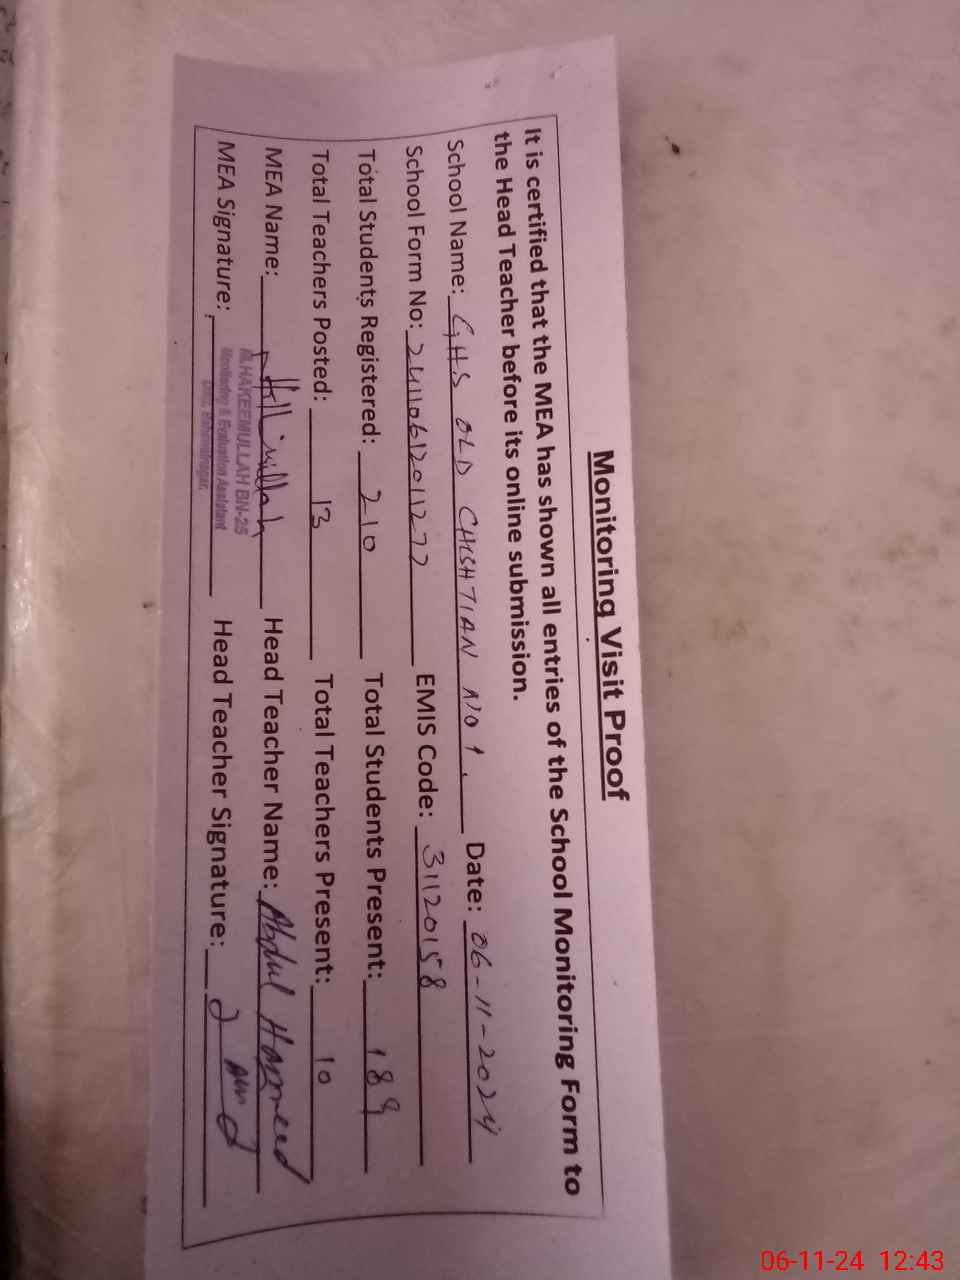 Monitoring Visit Proof
It is certified that the MEA has shown all entries of the School Monitoring Form to
the Head Teacher before its online submission.
School Name: GHS OLD CHISHTIAN NO 1. Date: 06-11-2024
School Form No: 24110612011277 EMIS Code: 31120158
Total Students Registered: 210 Total Students Present: 189
Total Teachers Posted: 13 Total Teachers Present: 10
MEA Name: Head Teacher Name: Abdul Hameed
M.HAKEEMULLAH BN-25
Monitoring & Evaluation Assistant
MEA Signature: Head Teacher Signature:
06-11-24 12:43